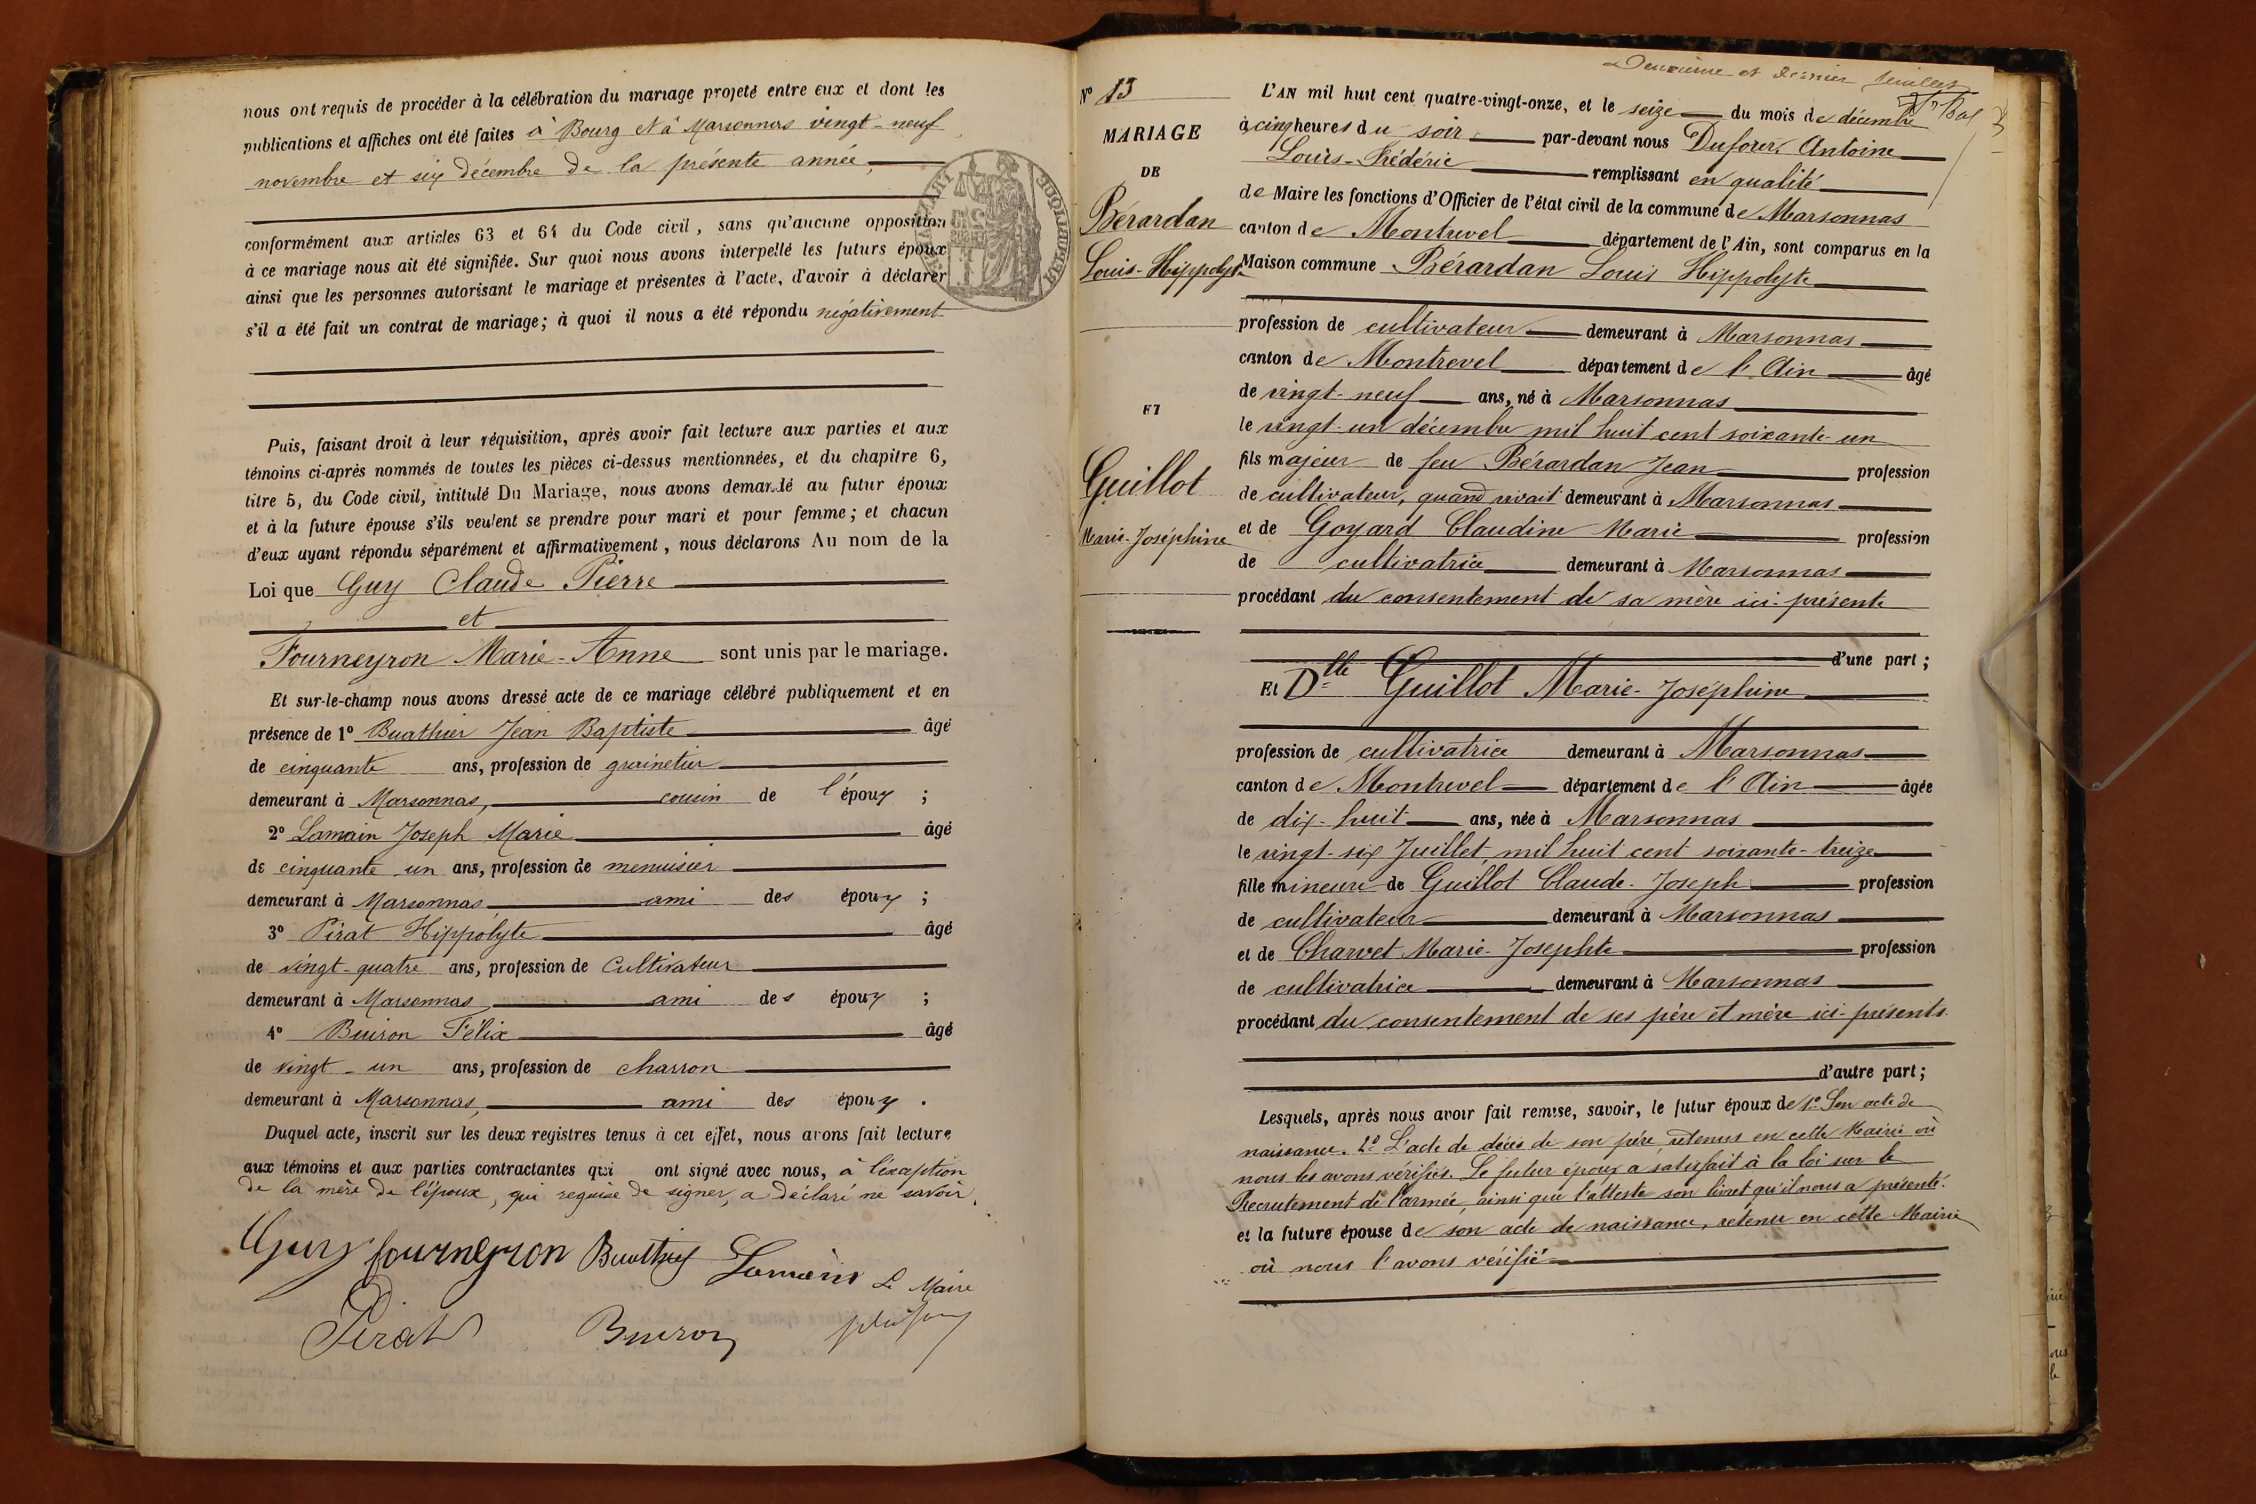 nous ont requis de procéder à la célébration du mariage projeté entre eux et dont les
publications et affiches ont été faites à Bourg et à Marsonnas vingt-neuf
novembre et six décembre de la présente année,
conformément aux articles 63 et 64 du Code civil, sans qu'aucune opposition
à ce mariage nous ait été signifiée. Sur quoi nous avons interpellé les futurs époux
ainsi que les personnes autorisant le mariage et présentes à l'acte, d'avoir à déclarer
s'il a été fait un contrat de mariage; à quoi il nous a été répondu négativement
Puis, faisant droit à leur réquisition, après avoir fait lecture aux parties et aux
témoins ci-après nommés de toutes les pièces ci-dessus mentionnées, et du chapitre 6,
titre 5, du Code civil, intitulé Du Mariage, nous avons demandé au futur époux
et à la future épouse s'ils veulent se prendre pour mari et pour femme; et chacun
d'eux ayant répondu séparément et affirmativement, nous déclarons Au nom de la
Loi que Guy Claude Pierre
et
Fourneyron Marie-Anne sont unis par le mariage.
Et sur-le-champ nous avons dressé acte de ce mariage célébré publiquement et en
présence de 1° Buathier Jean Baptiste âgé
de cinquante ans, profession de grainetier
demeurant à Marsonnas, cousin de l'époux ;
2° Lamain Joseph Marie âgé
de cinquante un ans, profession de menuisier
demeurant à Marsonnas, ami des époux ;
3° Pirat Hippolyte âgé
de vingt-quatre ans, profession de Cultivateur
demeurant à Marsonnas, ami des époux ;
4° Buiron Félix âgé
de vingt-un ans, profession de charron
demeurant à Marsonnas, ami des époux .
Duquel acte, inscrit sur les deux registres tenus à cet effet, nous avons fait lecture
aux témoins et aux parties contractantes qui ont signé avec nous, à l'exception
de la mère de l'époux, qui requise de signer, a déclaré ne savoir.
Guy fourneyron Buathier Lamain Le Maire
Pirat Buiron
N° 13
MARIAGE
DE
Bérardan
Louis-Hippolyte
ET
Guillot
Marie-Joséphine
Deuxième et dernier feuillet
L'AN mil huit cent quatre-vingt-onze, et le seize du mois de décembre
à cinq heures du soir par-devant nous Dufour, Antoine
Louis-Frédéric remplissant en qualité
de Maire les fonctions d'Officier de l'état civil de la commune de Marsonnas
canton de Montrevel département de l'Ain, sont comparus en la
Maison commune Bérardan Louis Hippolyte
profession de cultivateur demeurant à Marsonnas
canton de Montrevel département de l'Ain âgé
de vingt-neuf ans, né à Marsonnas
le vingt-un décembre mil huit cent soixante-un
fils majeur de feu Bérardan Jean profession
de cultivateur, quand vivait demeurant à Marsonnas
et de Goyard Claudine Marie profession
de cultivatrice demeurant à Marsonnas
procédant du consentement de sa mère ici-présente
d'une part ;
Et Dlle Guillot Marie-Joséphine
profession de cultivatrice demeurant à Marsonnas
canton de Montrevel département de l'Ain âgée
de dix-huit ans, née à Marsonnas
le vingt-six Juillet mil huit cent soixante-treize
fille mineure de Guillot Claude-Joseph profession
de cultivateur demeurant à Marsonnas
et de Charvet Marie-Josephte profession
de cultivatrice demeurant à Marsonnas
procédant du consentement de ses père et mère ici-présents.
d'autre part ;
Lesquels, après nous avoir fait remise, savoir, le futur époux de 1° Son acte de
naissance. 2° L'acte de décès de son père, retenus en cette Mairie où
nous les avons vérifiés. Le futur époux a satisfait à la loi sur le
Recrutement de l'armée, ainsi que l'atteste son livret qu'il nous a présenté.
et la future épouse de son acte de naissance, retenu en cette Mairie
où nous l'avons vérifié